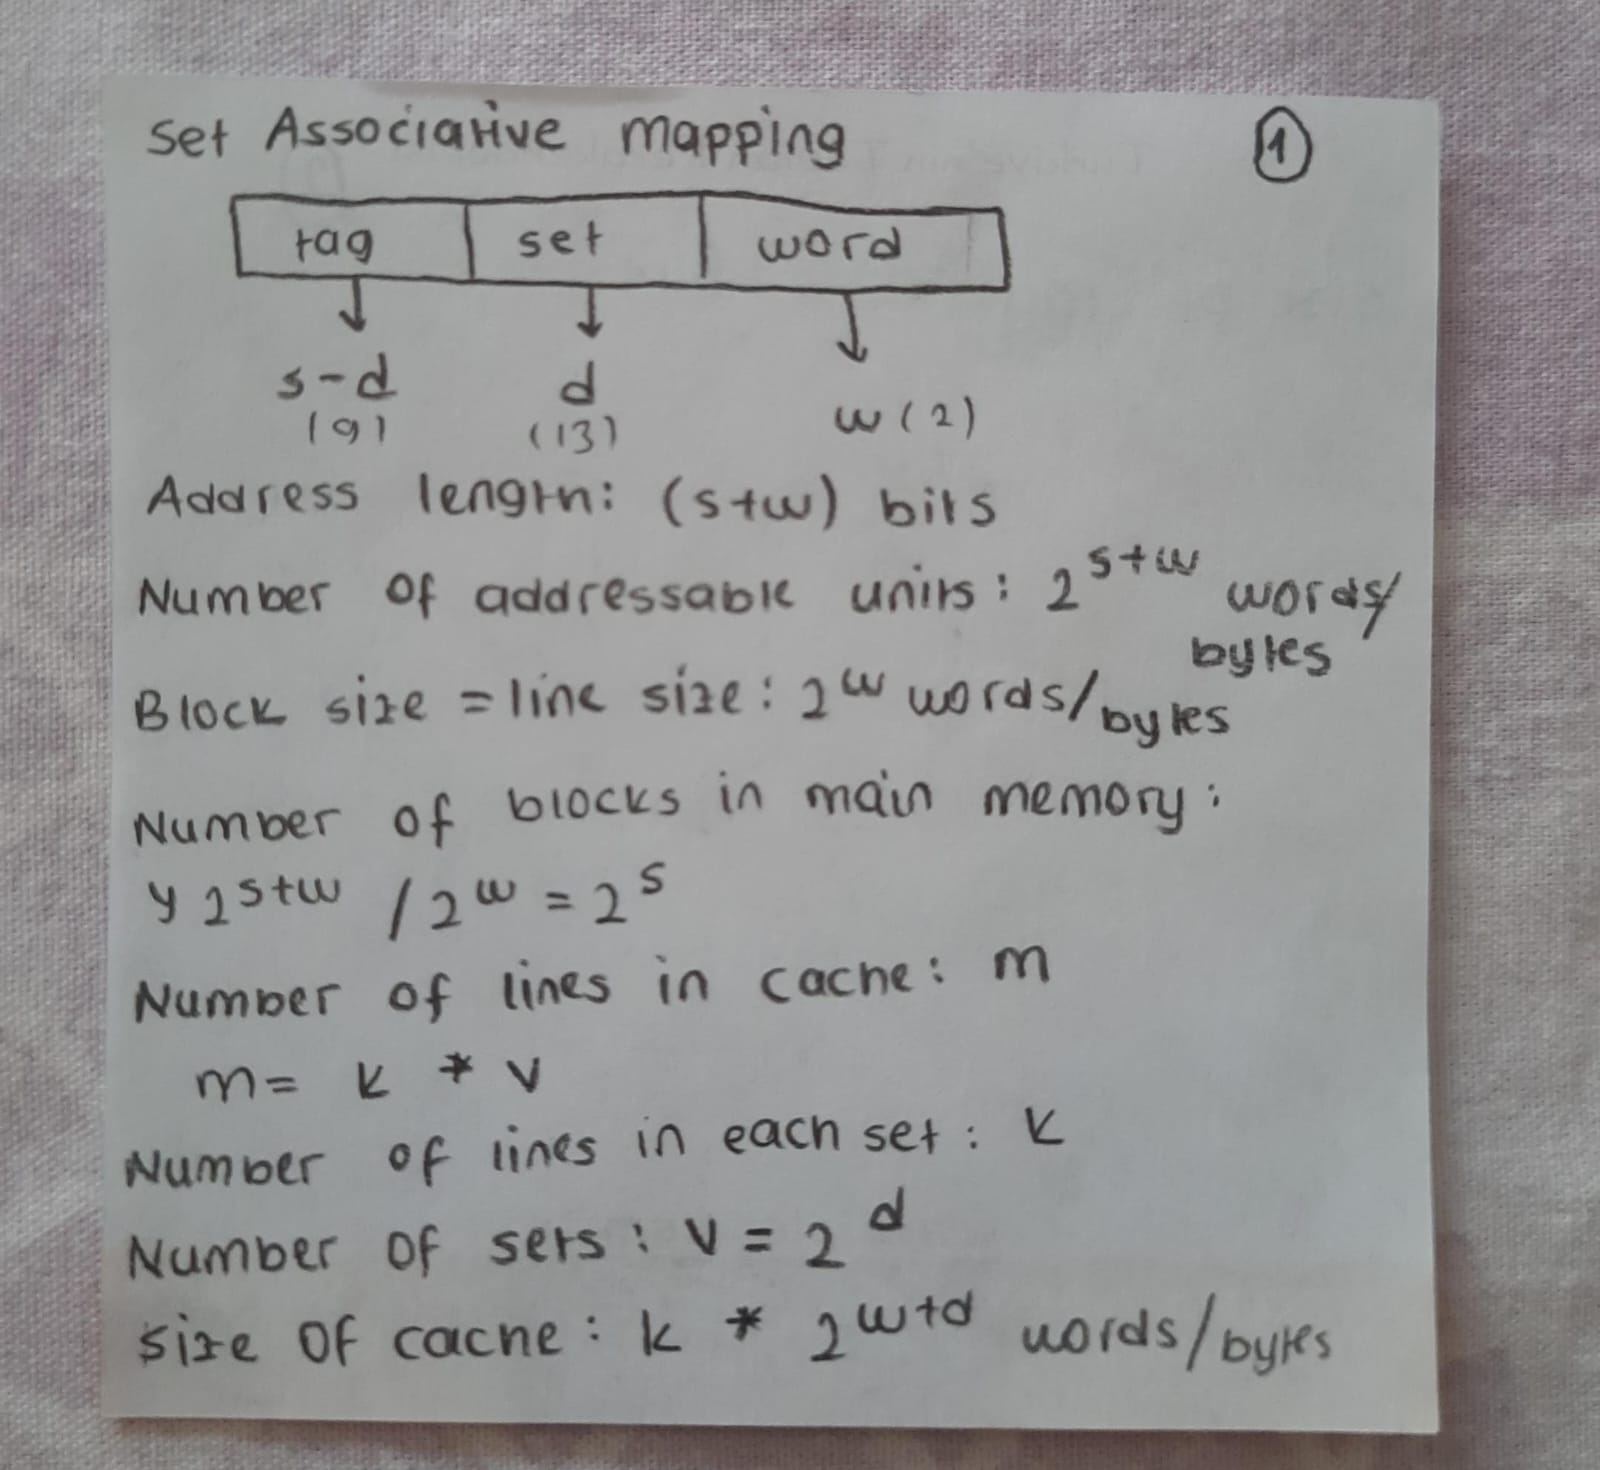 Set Associative mapping ①
tag set word
s-d d w (2)
(9) (13)
Address length: (s+w) bits
Number of addressable units: 2^s+w words/
bytes
Block size = line size: 2^w words/bytes
Number of blocks in main memory:
y 2^s+w / 2^w = 2^s
Number of lines in cache: m
m= k * v
Number of lines in each set: k
Number of sets: v = 2^d
Size of cache: k * 2^w+d words/bytes